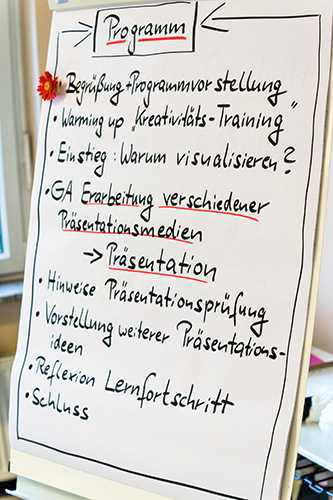 Programm
• Begrüßung + Programmvorstellung
• Warming up „Kreativitäts-Training"
• Einstieg: Warum visualisieren?
• GA Erarbeitung verschiedener
Präsentationsmedien
→ Präsentation
• Hinweise Präsentationsprüfung
• Vorstellung weiterer Präsentations-
ideen
• Reflexion Lernfortschritt
• Schluss